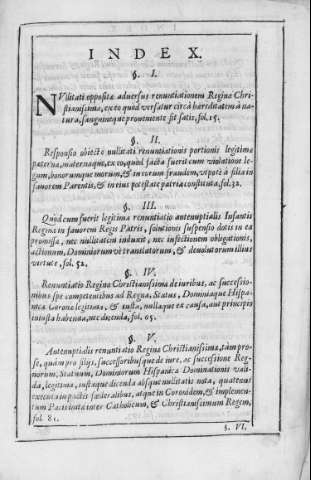 INDEX.
§. I.
NUllitati oppositæ adversus renuntiationem Reginæ Chri-
stianissimæ, ex eo quòd versatur circà hæreditatem à na-
tura, sanguineque proveniente fit satis, fol. 15.
§. II.
Responsio obiectæ nullitati renuntiationis portionis legitimæ
paternæ, maternæque, ex eo, quòd facta fuerit cum violatione le-
gum, bonorumque morum, & in eorum fraudem, utpotè à filia in
favorem Parentis, & in eius potestate patria constituta, fol. 32.
§. III.
Quòd cum fuerit legitima renuntiatio antenuptialis Infantis
Reginæ in favorem Regis Patris, solutionis suspensio dotis in ea
promissæ, nec nullitatem induxit, nec infectionem obligationis,
actionum, Dominiorum vè translatorum, & devolutorum illius
virtute, fol. 52.
§. IV.
Renuntiatio Reginæ Christianissimæ de iuribus, ac successio-
nibus spe competentibus ad Regna, Status, Dominiaque Hispa-
nicæ Coronæ legitima, & iusta, nullaque ex causa, aut principio
iniusta habenda, nec dicenda, fol. 65.
§. V.
Antenuptialis renuntiatio Reginæ Christianissimæ, tàm pro
se, quàm pro filijs, successoribusque de iure, ac successione Reg-
norum, Statuum, Dominiorum Hispanicæ Dominationis vali-
da, legitima, iustaque dicenda absque nullitatis nota, quatenus
executa in pactis fœderalibus, atque in Coronidem, & implemen-
tum Pacis inita inter Catholicum, & Christianissimum Regem,
fol. 81.
§. VI.